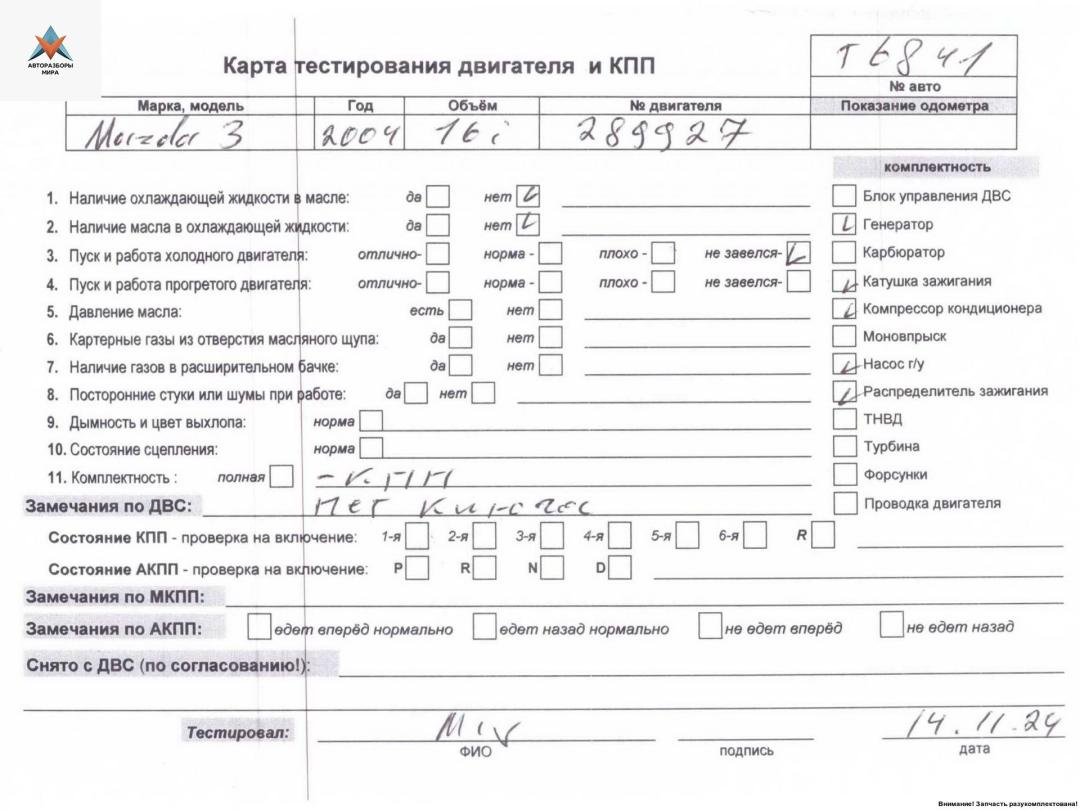 АВТОРАЗБОРЫ
МИРА
Т6841
Карта тестирования двигателя и КПП
№ авто
Марка, модель Год Объём № двигателя Показание одометра
Mazda 3 2004 16i 289927
комплектность
1. Наличие охлаждающей жидкости в масле: да нет Блок управления ДВС
2. Наличие масла в охлаждающей жидкости: да нет Генератор
3. Пуск и работа холодного двигателя: отлично- норма - плохо - не завелся- Карбюратор
4. Пуск и работа прогретого двигателя: отлично- норма - плохо - не завелся- Катушка зажигания
5. Давление масла: есть нет Компрессор кондиционера
6. Картерные газы из отверстия масляного щупа: да нет Моновпрыск
7. Наличие газов в расширительном бачке: да нет Насос г/у
8. Посторонние стуки или шумы при работе: да нет Распределитель зажигания
9. Дымность и цвет выхлопа: норма ТНВД
10. Состояние сцепления: норма Турбина
11. Комплектность : полная - КПП Форсунки
Замечания по ДВС: Нет Проводка двигателя
Состояние КПП - проверка на включение: 1-я 2-я 3-я 4-я 5-я 6-я R
Состояние АКПП - проверка на включение: P R N D
Замечания по МКПП:
Замечания по АКПП: едет вперёд нормально едет назад нормально не едет вперёд не едет назад
Снято с ДВС (по согласованию!):
Тестировал: 14.11.24
ФИО подпись дата
Внимание! Запчасть разукомплектована!